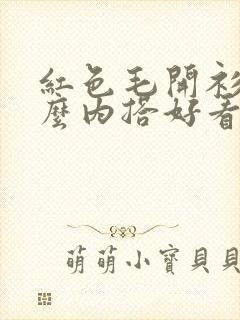 紅色毛開衫
麼內搭好看
萌萌小寶貝貝